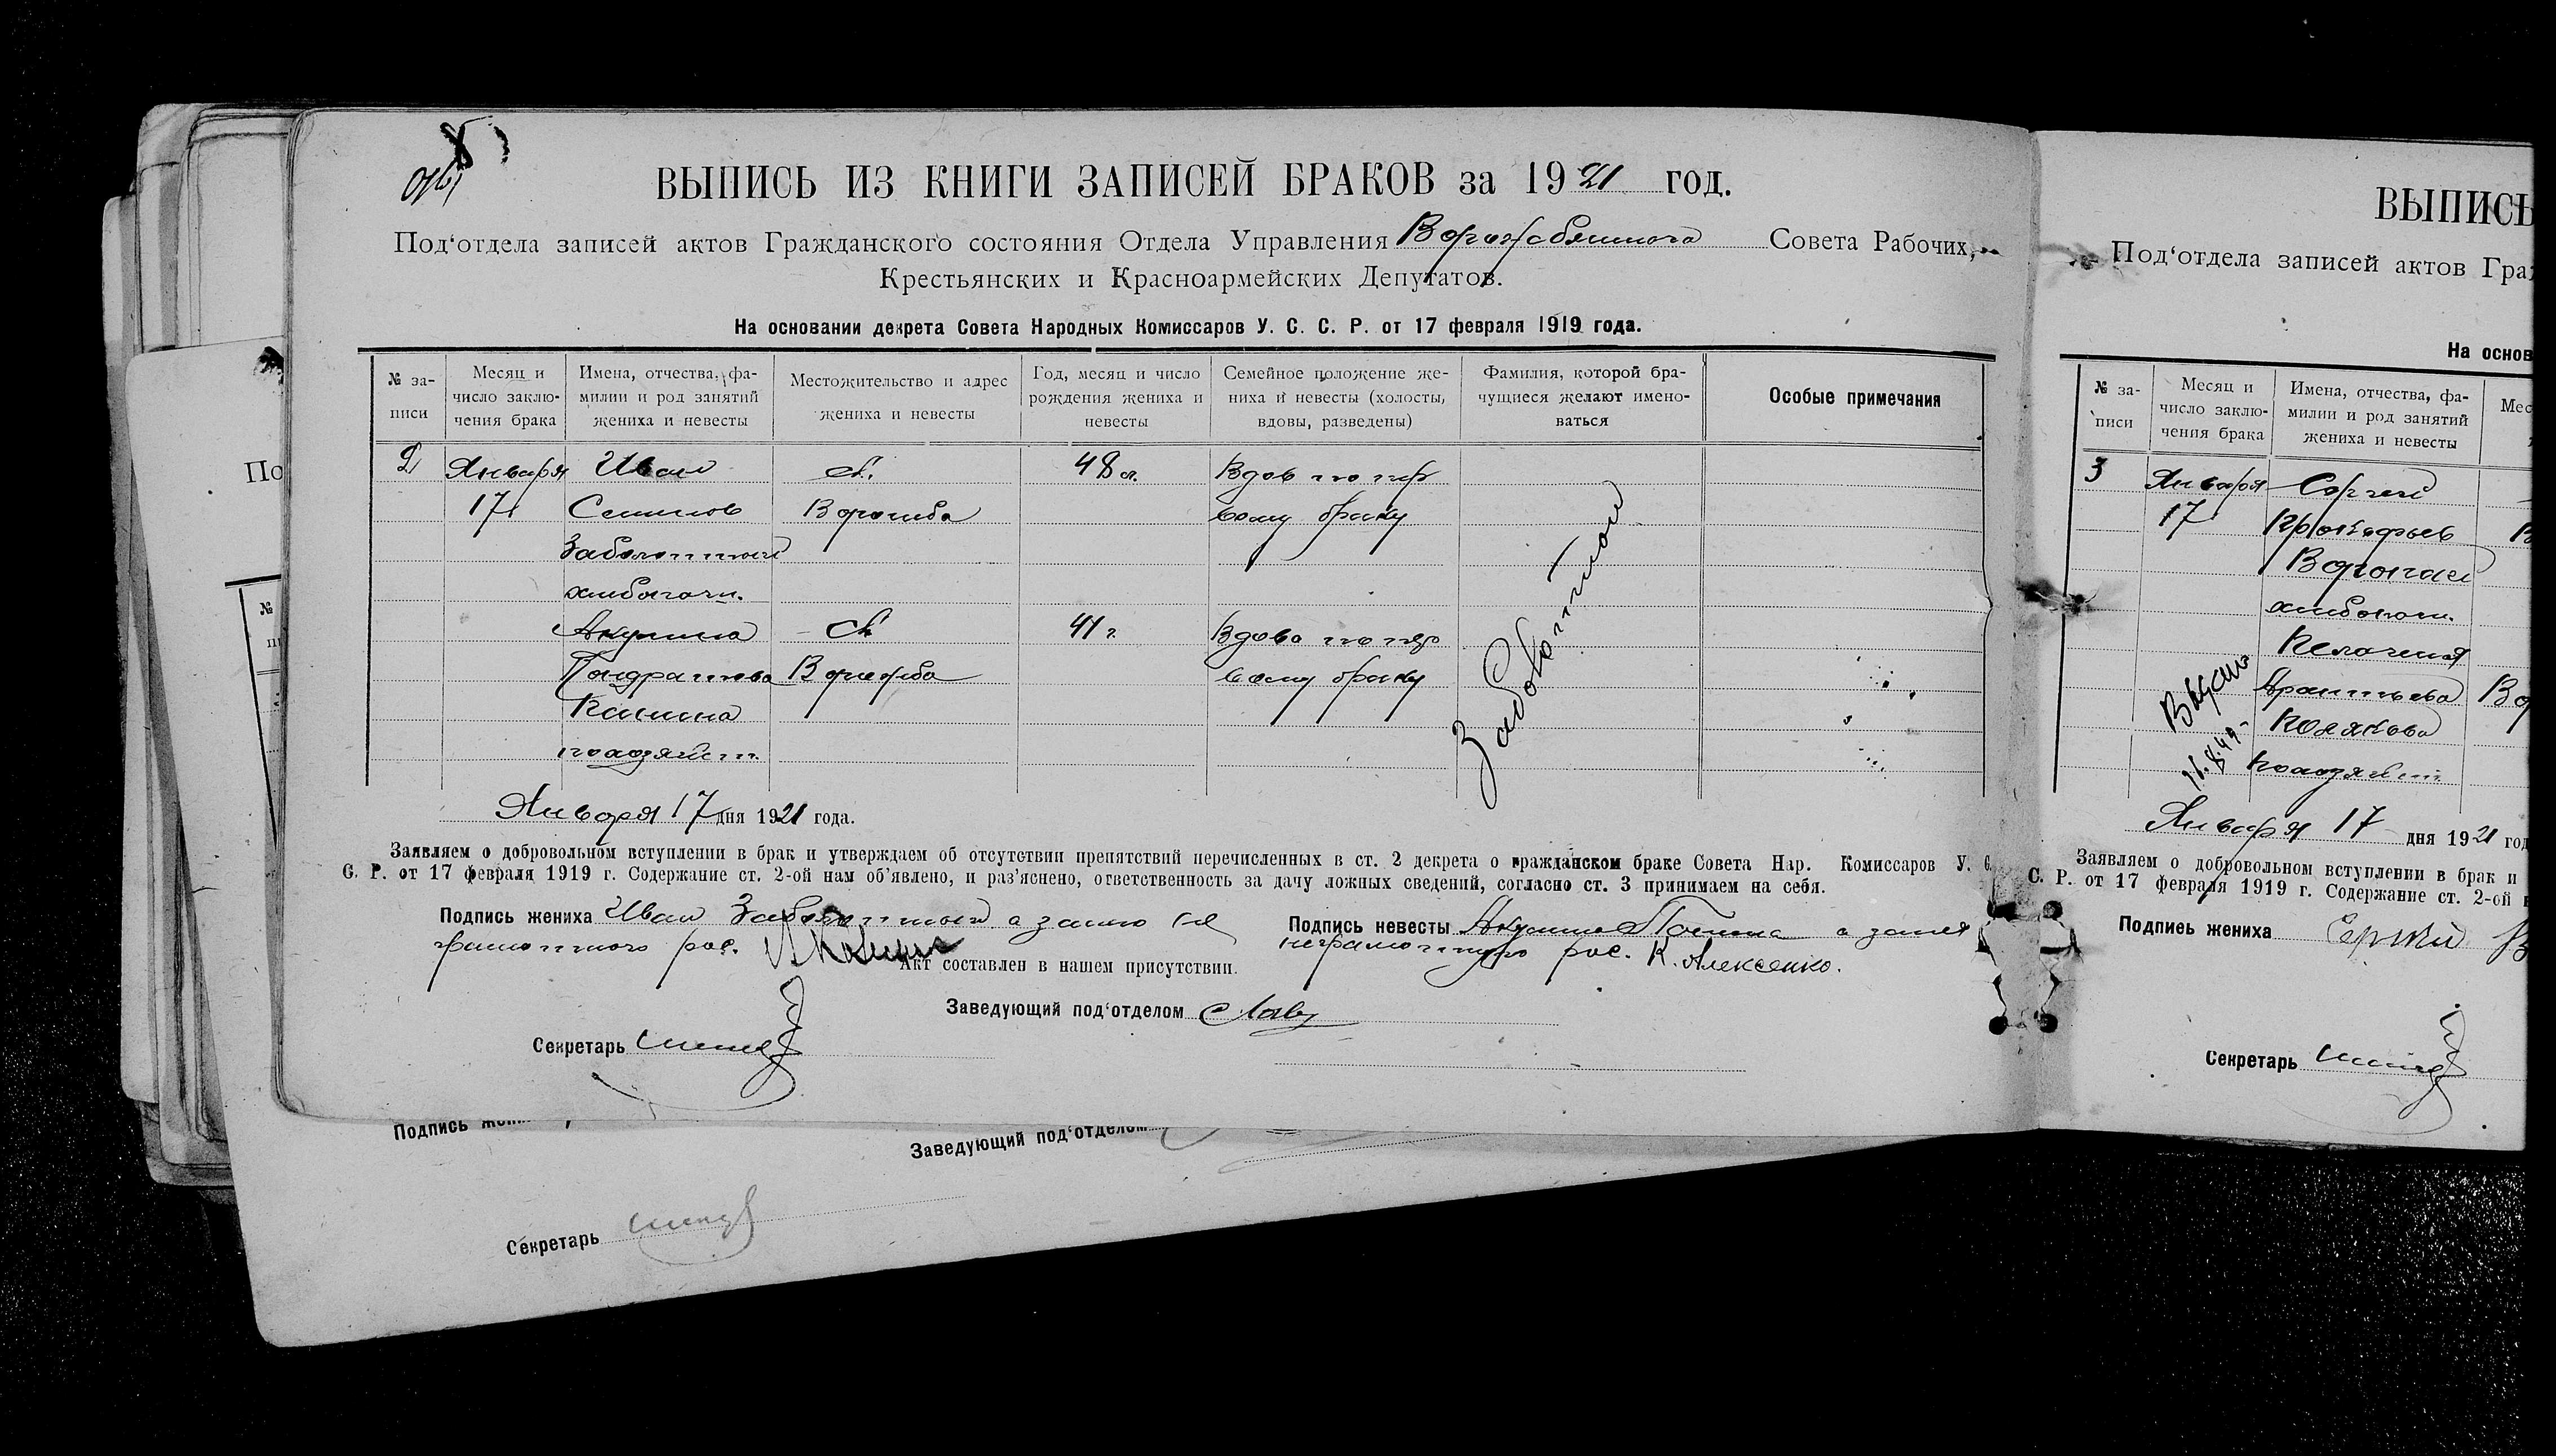 ВЫПИСЬ ИЗ КНИГИ ЗАПИСЕЙ БРАКОВ за 1921 год.
Под‘отдела записей актов Гражданского состояния Отдела Управления Ворожбянского Совета Рабочих,
Крестьянских и Красноармейских Депутатов.
На основании декрета Совета Народных Комиссаров У. С. С. Р. от 17 февраля 1919 года.
№ за-писи | Месяц и число заклю-чения брака | Имена, отчества, фа-милии и род занятий жениха и невесты | Местожительство и адрес жениха и невесты | Год, месяц и число рождения жениха и невесты | Семейное положение же-ниха и невесты (холосты, вдовы, разведены) | Фамилия, которой бра-чущиеся желают имено-ваться | Особые примечания
2 Января Иван с. 48 л. Вдов по пер
17 Семенов Ворожба вому браку
Заболотный
хлебопаш.
Акулина с. 41 г. Вдова по пер
Кондратова Ворожба вому браку
Калина
по хозяйст.
Заболотный
Января 17 дня 1921 года.
Заявляем о добровольном вступлении в брак и утверждаем об отсутствии препятствий перечисленных в ст. 2 декрета о гражданском браке Совета Нар. Комиссаров У. С.
С. Р. от 17 февраля 1919 г. Содержание ст. 2-ой нам об’явлено, и раз’яснено, ответственность за дачу ложных сведений, согласно ст. 3 принимаем на себя.
Подпись жениха Иван Заболотный а за него не
грамотного рос.
Подпись невесты Акулина а за нея
неграмотную рос. К. Алексенко.
Акт составлен в нашем присутствии.
Заведующий под‘отделом
Секретарь
Подпись
Заведующий под‘отделом
Секретарь
По
№
ВЫПИСЬ
Под‘отдела записей актов Граж
На основ
№ за-писи | Месяц и число заклю-чения брака | Имена, отчества, фа-милии и род занятий жениха и невесты | Мес
3 Января Сергей
17 Прокофьев
Воропай
хлебопаш.
Пелагея
Полякова
по хозяйст.
11.8.49.
Января 17 дня 1921 год
Заявляем о добровольном вступлении в брак и
С. Р. от 17 февраля 1919 г. Содержание ст. 2-ой
Подпись жениха
Секретарь